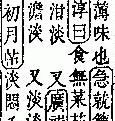 薄味也急就
淳曰食無菜
泔淡 又廣
澹淡 又淡
初月帖淡悶